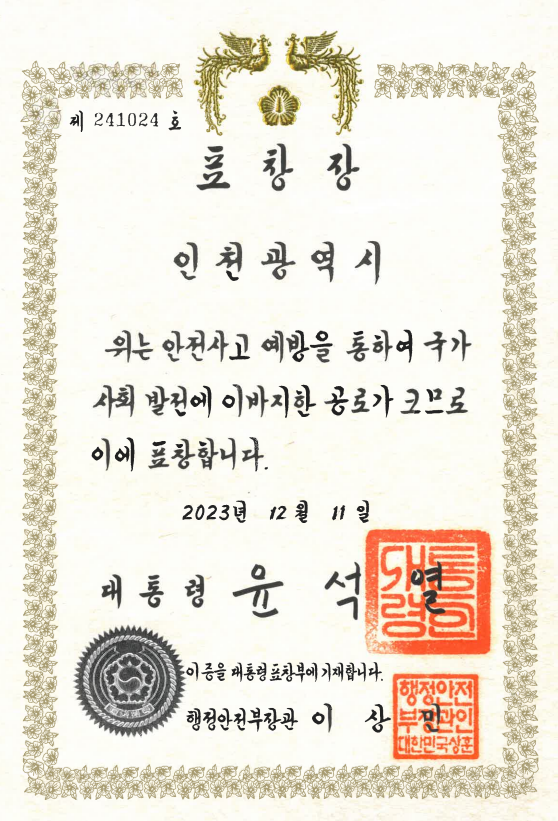 제 241024 호
표창장
인천광역시
위는 안전사고 예방을 통하여 국가
사회 발전에 이바지한 공로가 크므로
이에 표창합니다.
2023년 12월 11일
대통령 윤석열
대통령인
이 증을 대통령표창부에 기재합니다.
행정안전부장관 이상민
행정안전
부장관인
대한민국상훈